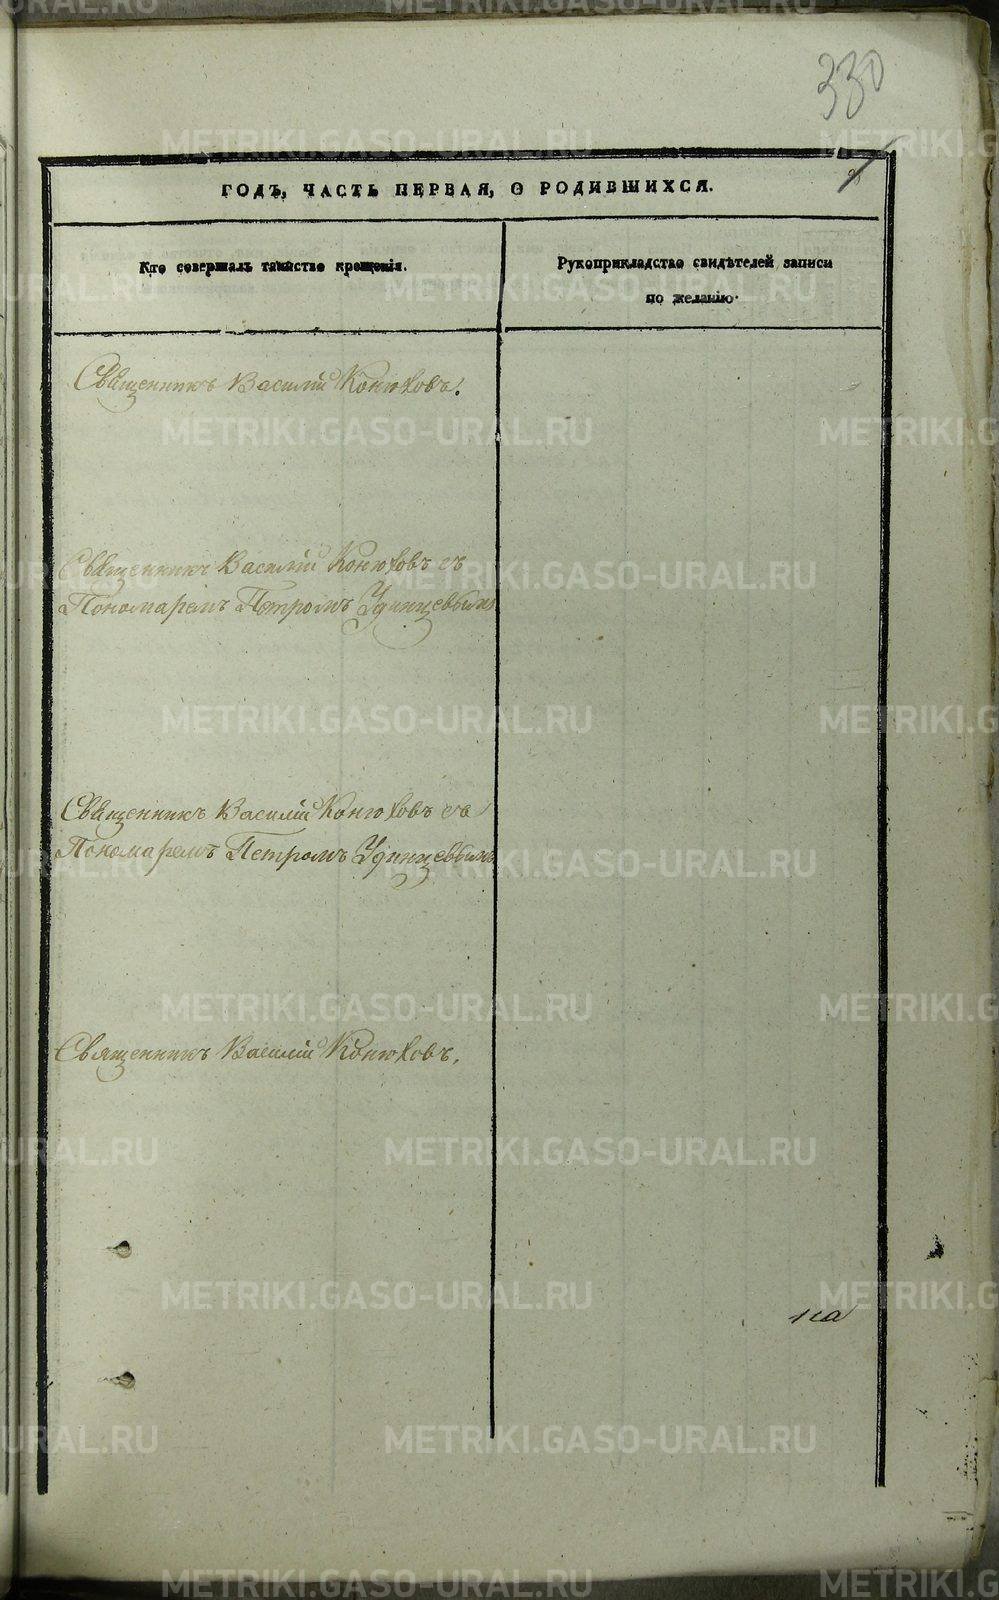 330
ГОДЪ, ЧАСТЬ ПЕРВАЯ, О РОДИВШИХСЯ.
Кто совершалъ таинство крещенія.
Рукоприкладство свидѣтелей записи
по желанію.
Священникъ Василій Конюховъ.
Священникъ Василій Конюховъ съ
Пономаремъ Петромъ Удинцевымъ
Священникъ Василій Конюховъ съ
Пономаремъ Петромъ Удинцевымъ
Священникъ Василій Конюховъ.
на
METRIKI.GASO-URAL.RU